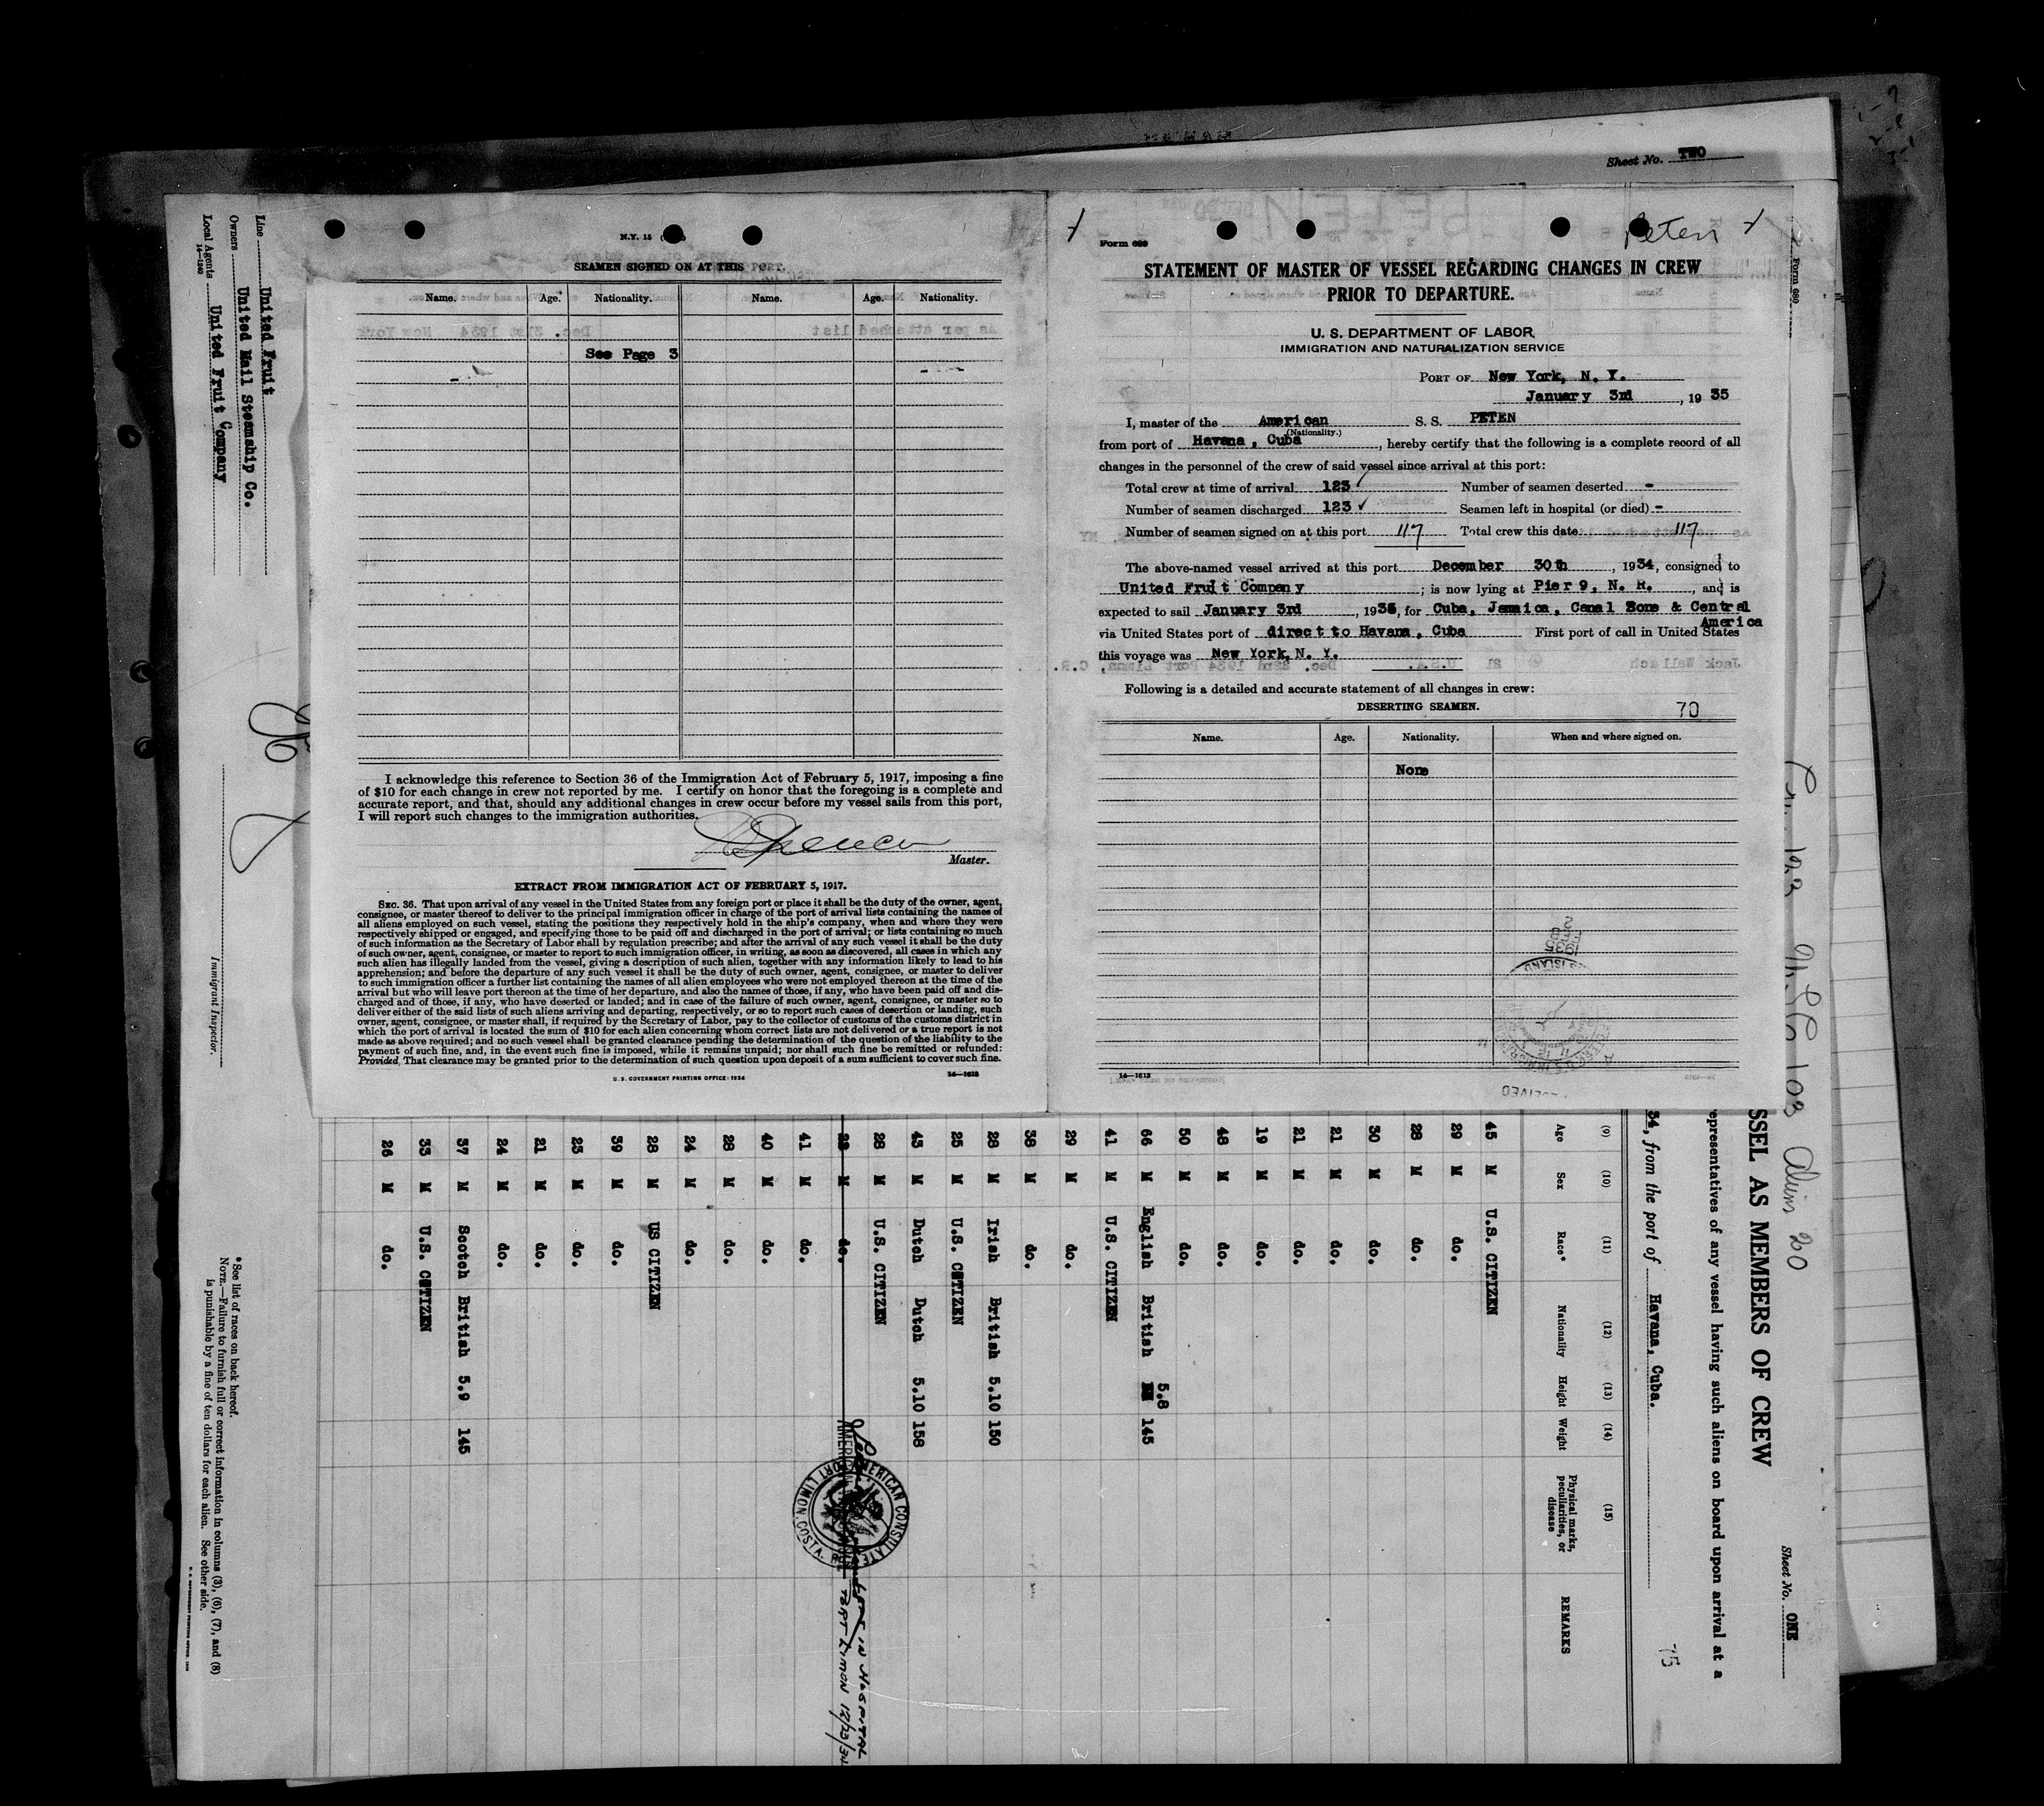 Sheet No. TWO
N.Y. 15
SEAMEN SIGNED ON AT THIS PORT.
Name. Age. Nationality. Name. Age. Nationality.
See Page 3
I acknowledge this reference to Section 36 of the Immigration Act of February 5, 1917, imposing a fine
of $10 for each change in crew not reported by me. I certify on honor that the foregoing is a complete and
accurate report, and that, should any additional changes in crew occur before my vessel sails from this port,
I will report such changes to the immigration authorities.
Spencer
Master.
EXTRACT FROM IMMIGRATION ACT OF FEBRUARY 5, 1917.
SEC. 36. That upon arrival of any vessel in the United States from any foreign port or place it shall be the duty of the owner, agent,
consignee, or master thereof to deliver to the principal immigration officer in charge of the port of arrival lists containing the names of
all aliens employed on such vessel, stating the positions they respectively hold in the ship's company, when and where they were
respectively shipped or engaged, and specifying those to be paid off and discharged in the port of arrival; or lists containing so much
of such information as the Secretary of Labor shall by regulation prescribe; and after the arrival of any such vessel it shall be the duty
of such owner, agent, consignee, or master to report to such immigration officer, in writing, as soon as discovered, all cases in which any
such alien has illegally landed from the vessel, giving a description of such alien, together with any information likely to lead to his
apprehension; and before the departure of any such vessel it shall be the duty of such owner, agent, consignee, or master to deliver
to such immigration officer a further list containing the names of all alien employees who were not employed thereon at the time of the
arrival but who will leave port thereon at the time of her departure, and also the names of those, if any, who have been paid off and dis-
charged and of those, if any, who have deserted or landed; and in case of the failure of such owner, agent, consignee, or master so to
deliver either of the said lists of such aliens arriving and departing, respectively, or so to report such cases of desertion or landing, such
owner, agent, consignee, or master shall, if required by the Secretary of Labor, pay to the collector of customs of the customs district in
which the port of arrival is located the sum of $10 for each alien concerning whom correct lists are not delivered or a true report is not
made as above required; and no such vessel shall be granted clearance pending the determination of the question of the liability to the
payment of such fine, and, in the event such fine is imposed, while it remains unpaid; nor shall such fine be remitted or refunded:
Provided, That clearance may be granted prior to the determination of such question upon deposit of a sum sufficient to cover such fine.
U. S. GOVERNMENT PRINTING OFFICE: 1934
14—1613
Peten
Form 689
STATEMENT OF MASTER OF VESSEL REGARDING CHANGES IN CREW
PRIOR TO DEPARTURE.
U. S. DEPARTMENT OF LABOR,
IMMIGRATION AND NATURALIZATION SERVICE
PORT OF New York, N. Y.
January 3rd, 1935
I, master of the American S. S. PETEN
(Nationality.)
from port of Havana, Cuba, hereby certify that the following is a complete record of all
changes in the personnel of the crew of said vessel since arrival at this port:
Total crew at time of arrival 123 Number of seamen deserted -
Number of seamen discharged 123 Seamen left in hospital (or died) -
Number of seamen signed on at this port 117 Total crew this date 117
The above-named vessel arrived at this port December 30th, 1934, consigned to
United Fruit Company; is now lying at Pier 9, N. R., and is
expected to sail January 3rd, 1935, for Cuba, Jamaica, Canal Zone & Central
America
via United States port of direct to Havana, Cuba First port of call in United States
this voyage was New York, N. Y.
Following is a detailed and accurate statement of all changes in crew:
DESERTING SEAMEN.
70
Name. Age. Nationality. When and where signed on.
None
14—1613
Form 680
Sheet No. ONE
SSEL AS MEMBERS OF CREW
epresentatives of any vessel having such aliens on board upon arrival at a
34, from the port of Havana, Cuba.
75
(9) (10) (11) (12) (13) (14) (15)
Age Sex Race* Nationality Height Weight Physical marks, peculiarities, or disease REMARKS
45 M U.S. CITIZEN
29 M do.
28 M do.
30 M do.
21 M do.
21 M do.
19 M do.
48 M do.
50 M do.
66 M English British 5.8 145
41 M U.S. CITIZEN
29 M do.
38 M do.
28 M Irish British 5.10 150
25 M U.S. CITIZEN
43 M Dutch Dutch 5.10 158
28 M U.S. CITIZEN
28 M do.
IN HOSPITAL
PORT LIMON 12/23/34
AMERICAN CONSULATE
PORT LIMON, COSTA RICA
41 M do.
40 M do.
28 M do.
24 M do.
28 M US CITIZEN
39 M do.
23 M do.
21 M do.
24 M do.
37 M Scotch British 5.9 145
33 M U.S. CITIZEN
26 M do.
Line United Fruit
Owners United Mail Steamship Co.
Local Agents United Fruit Company
14—1240
Immigrant Inspector.
*See list of races on back hereof.
NOTE.—Failure to furnish full or correct information in columns (3), (6), (7), and (8)
is punishable by a fine of ten dollars for each alien. See other side.